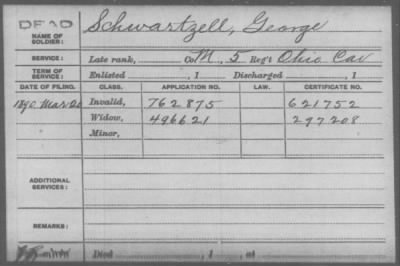 DEAD
NAME OF SOLDIER: Schwartzell, George
SERVICE: Late rank, Co M, 5 Reg't Ohio Cav
TERM OF SERVICE: Enlisted , 1 Discharged , 1
DATE OF FILING. CLASS. APPLICATION NO. LAW. CERTIFICATE NO.
1890 Mar 20 Invalid, 762875 621752
Widow, 496621 297208
Minor,
ADDITIONAL SERVICES:
REMARKS:
Died , 1 , at